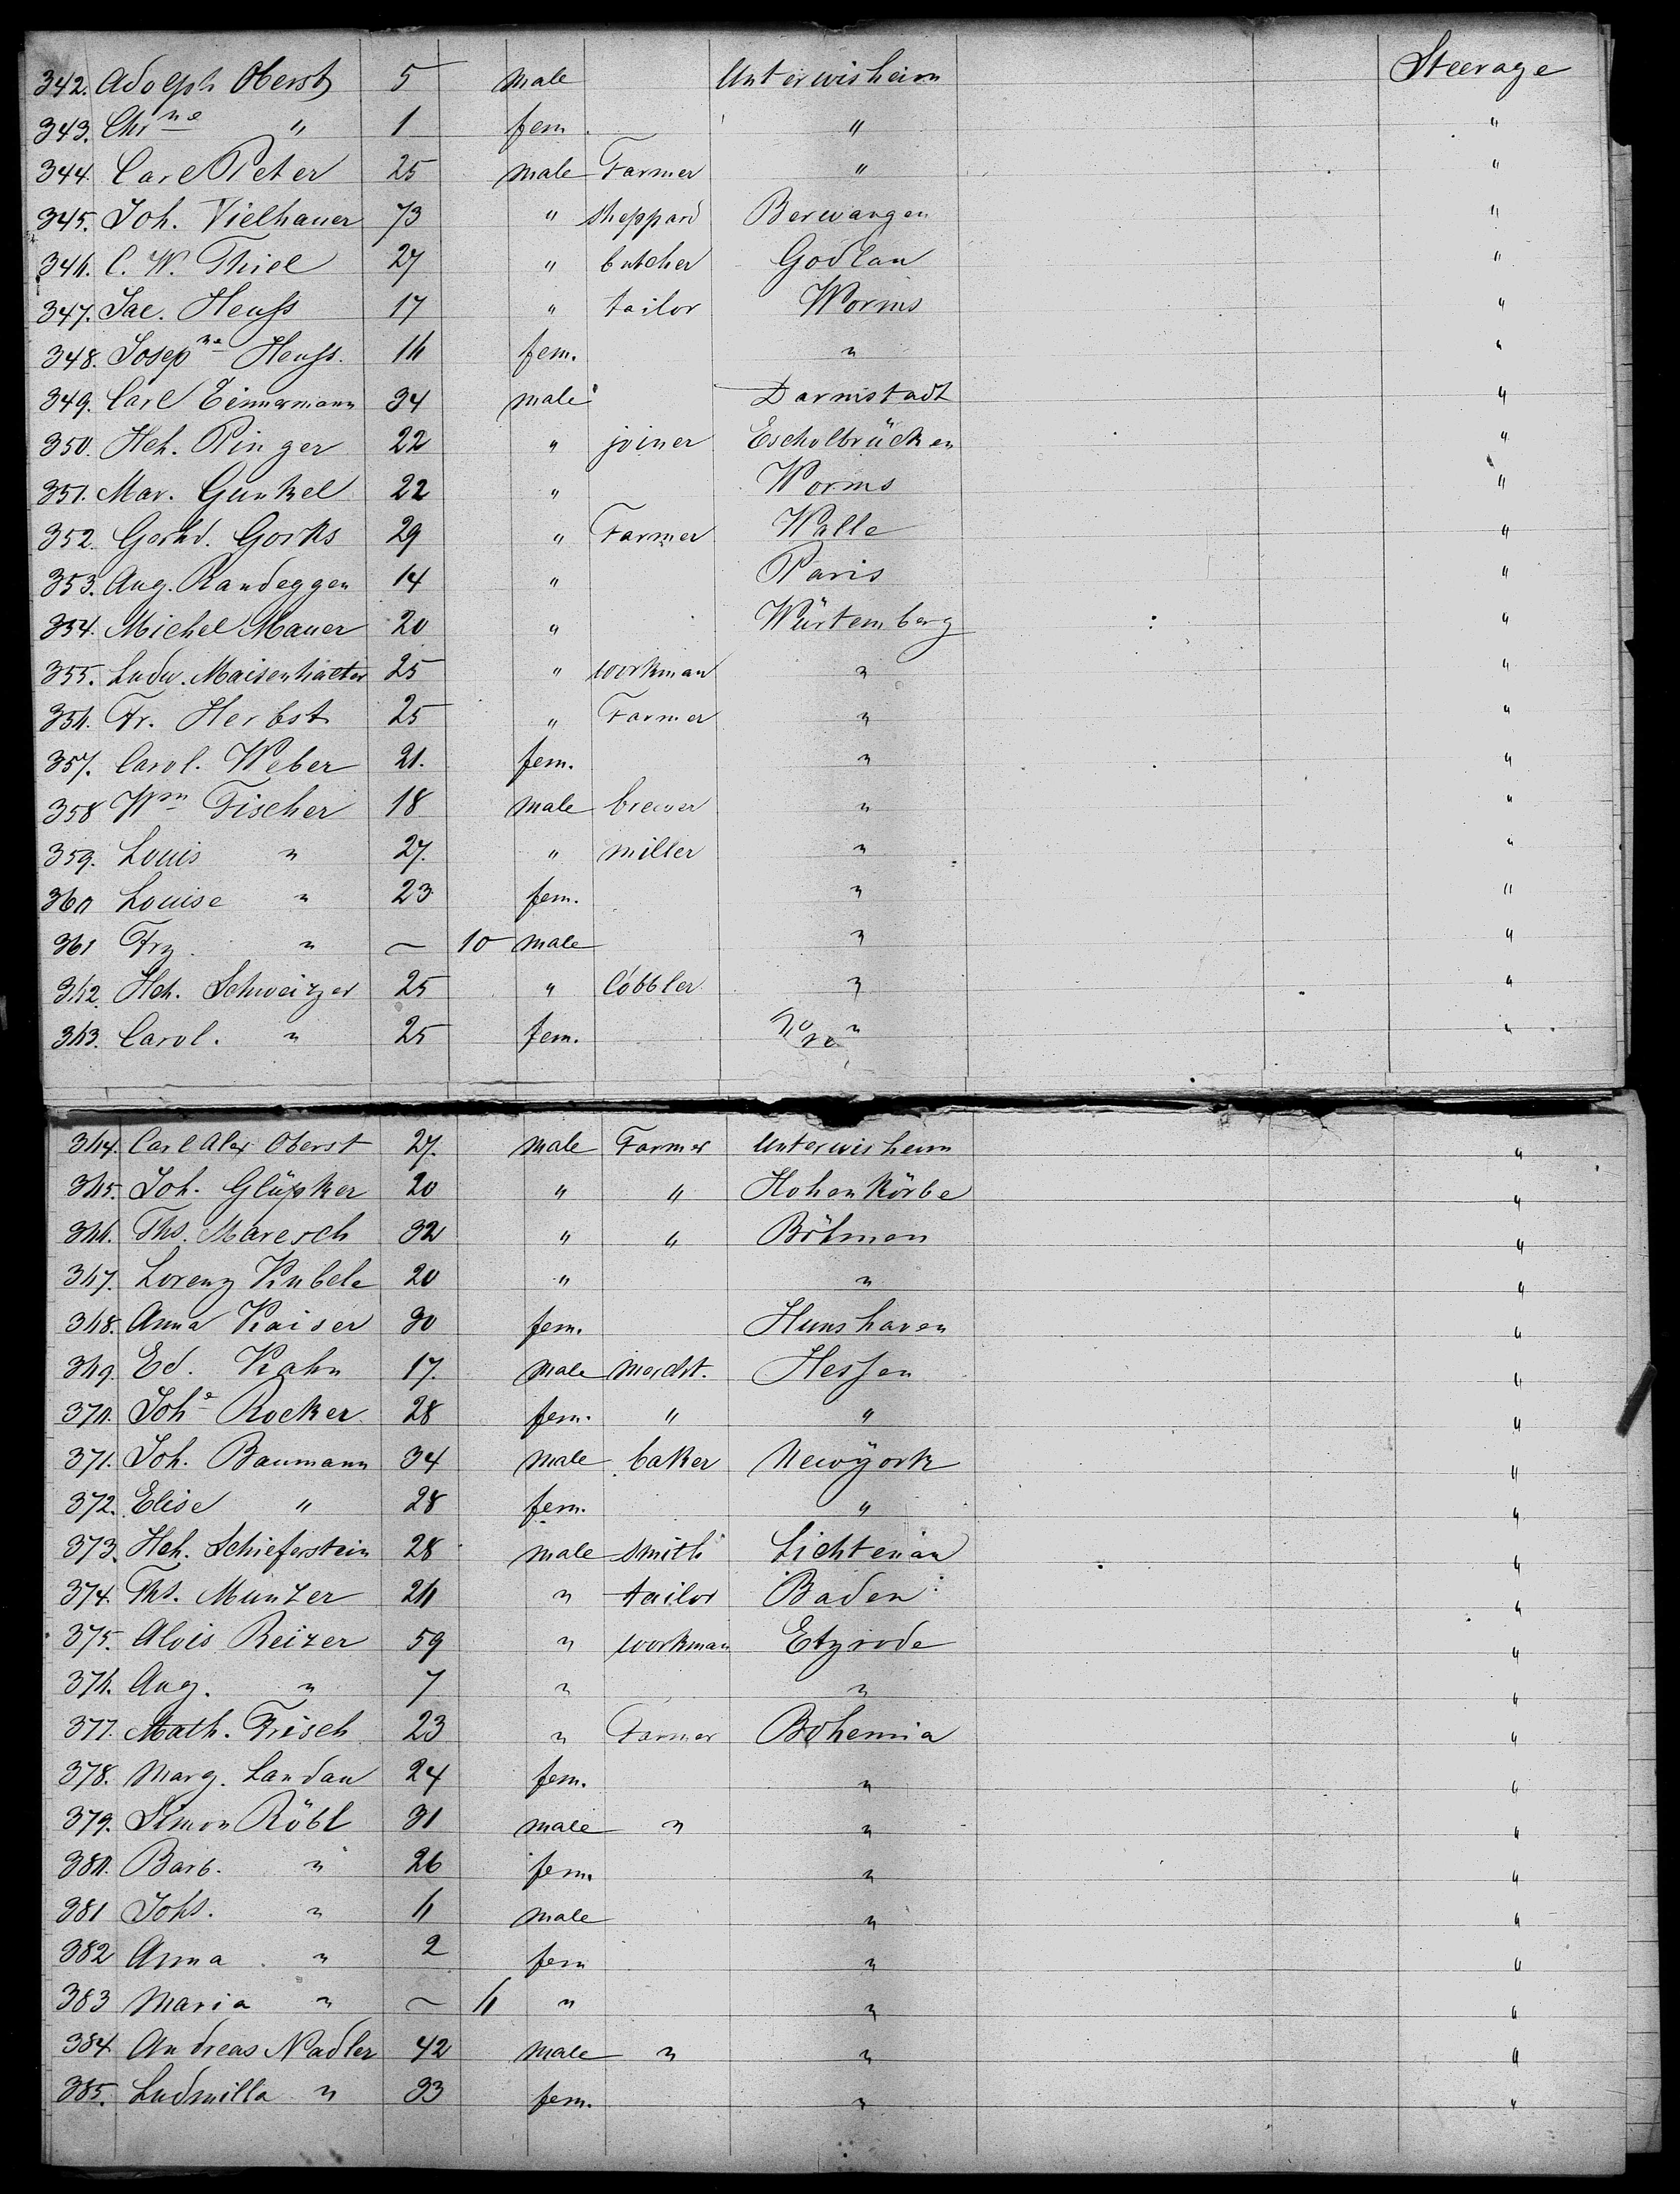 342. Adolph Oberst 5 male Unterwisheim Steerage
343. Chrne " 1 fem. " "
344. Carl Peter 25 male Farmer " "
345. Joh. Vielhauer 73 " sheppard Berwangen "
346. C. W. Thiel 27 " butcher Godlau "
347. Jac. Heuss 17 " tailor Worms "
348. Josepne Heuss. 16 fem. " "
349. Carl Zimmermann 34 male Darmstadt "
350. Hch. Pinger 22 " joiner Escholbrücken "
351. Mar. Gunkel 22 " Worms "
352. Gerhd. Gorks 29 " Farmer Walle "
353. Aug. Randeggen 14 " Paris "
354. Michel Mauer 20 " Würtemberg "
355. Ludw. Maisenhälter 25 " workman " "
356. Fr. Herbst 25 " Farmer " "
357. Carol. Weber 21. fem. " "
358 Wm Fischer 18 male brewer " "
359. Louis " 27. " miller " "
360 Louise " 23 fem. " "
361 Frz. " — 10 male " "
362 Hch. Schweizer 25 " Cobbler " "
363. Carol. " 25 fem. " "
364. Carl Alex Oberst 27. male Farmer Unterwisheim "
365. Joh. Glüpker 20 " " Hohenkörbe "
366. Ths. Maresch 32 " " Böhmen "
367. Lorenz Kubele 20 " " "
368. Anna Kaiser 30 fem. Hunshaven "
369. Ed. Kahn 17. male mercht. Hessen "
370. Johe Rocker 28 fem. " " "
371. Joh. Baumann 34 male baker Newyork "
372. Elise " 28 fem. " "
373. Hch. Schieferstein 28 male smith Lichtenau "
374. Ths. Munzer 26 " tailor Baden "
375. Alois Reizer 59 " workman Etzrode "
376. Aug. " 7 " " "
377. Math. Frisch 23 " Farmer Bohemia "
378. Marg. Landau 24 fem. " "
379. Simon Röbl 31 male " " "
380. Barb. " 26 fem. " "
381 Johs. " 6 male " "
382 Anna " 2 fem " "
383 Maria " — 6 " " "
384 Andreas Nadler 42 male " " "
385. Ludmilla " 33 fem. " "